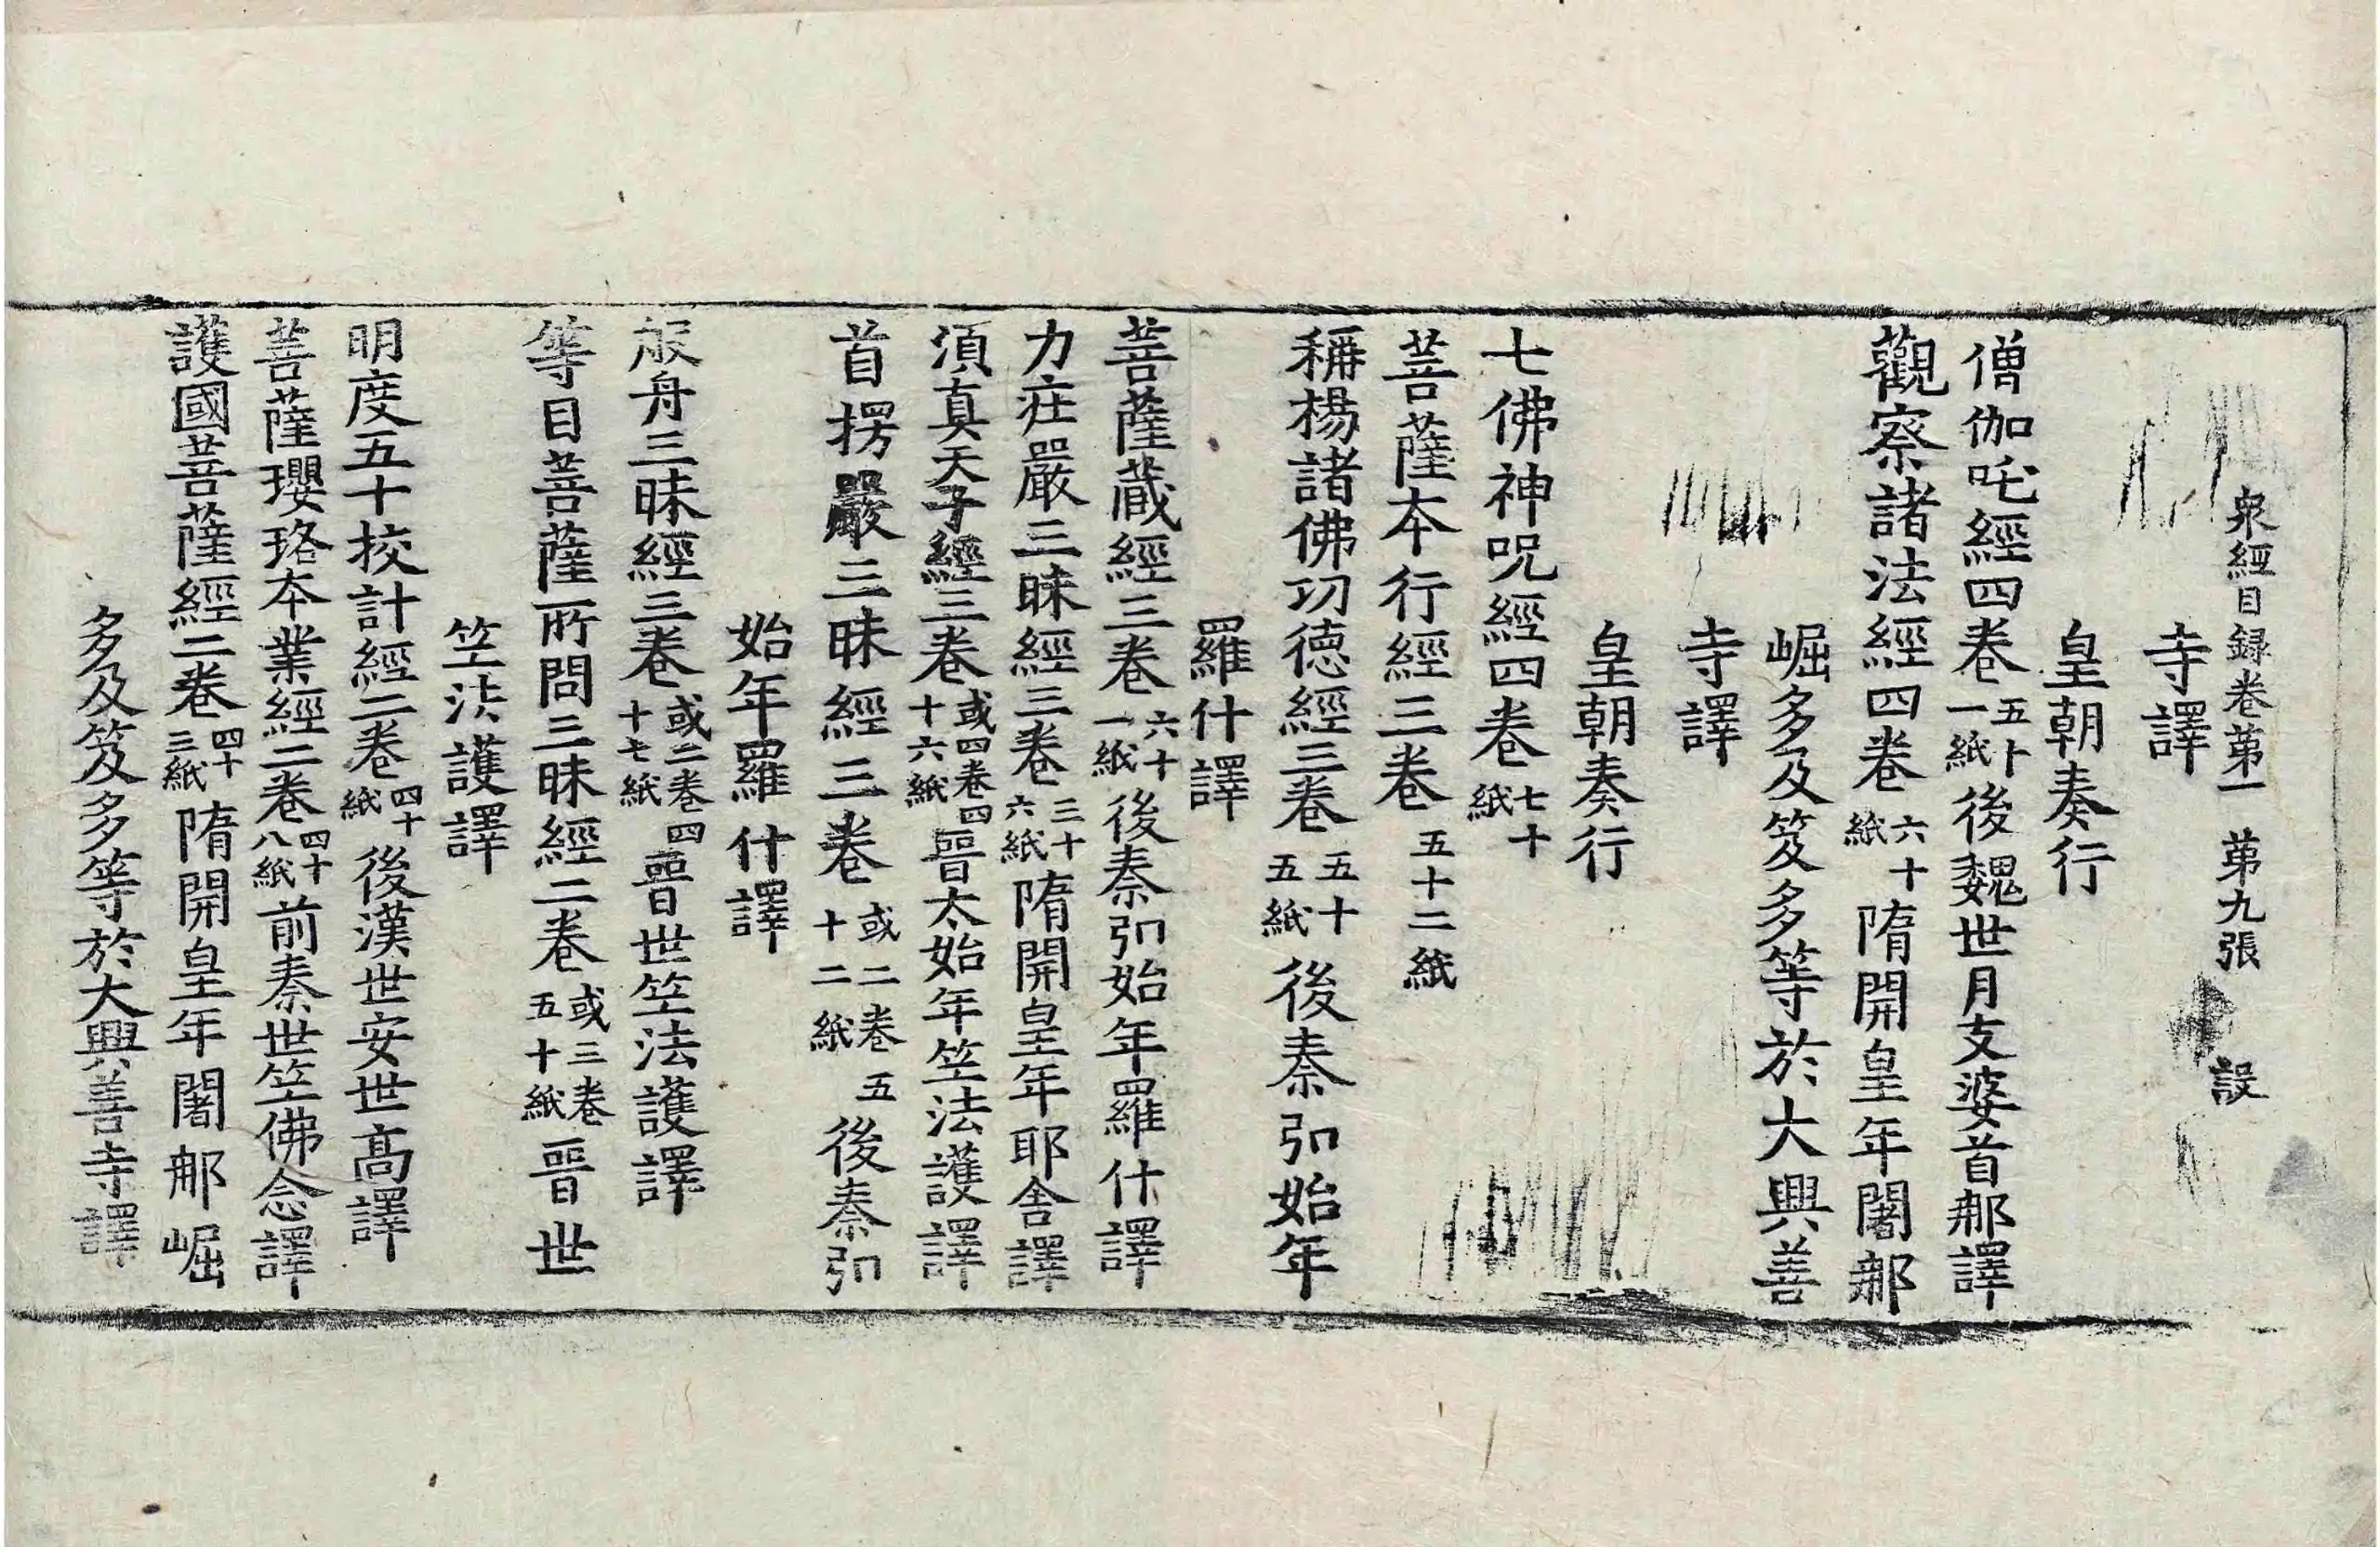 衆經目録卷第一　第九張　設
寺譯
皇朝奏行
僧伽吒經四卷五十一紙後魏世月支婆首那譯
觀察諸法經四卷六十紙隋開皇年闍那
崛多及笈多等於大興善
寺譯
皇朝奏行
七佛神呪經四卷七十紙
菩薩本行經三卷五十二紙
稱楊諸佛功德經三卷五十五紙後秦弘始年
羅什譯
菩薩藏經三卷六十一紙後秦弘始年羅什譯
力莊嚴三昧經三卷三十六紙隋開皇年耶舍譯
須真天子經三卷或四卷四十六紙晉太始年竺法護譯
首楞嚴三昧經三卷或二卷五十二紙後秦弘
始年羅什譯
般舟三昧經三卷或二卷四十七紙晉世竺法護譯
等目菩薩所問三昧經二卷或三卷五十紙晉世
竺法護譯
明度五十挍計經二卷四十紙後漢世安世高譯
菩薩瓔珞本業經二卷四十八紙前秦世竺佛念譯
護國菩薩經二卷四十三紙隋開皇年闍那崛
多及笈多等於大興善寺譯